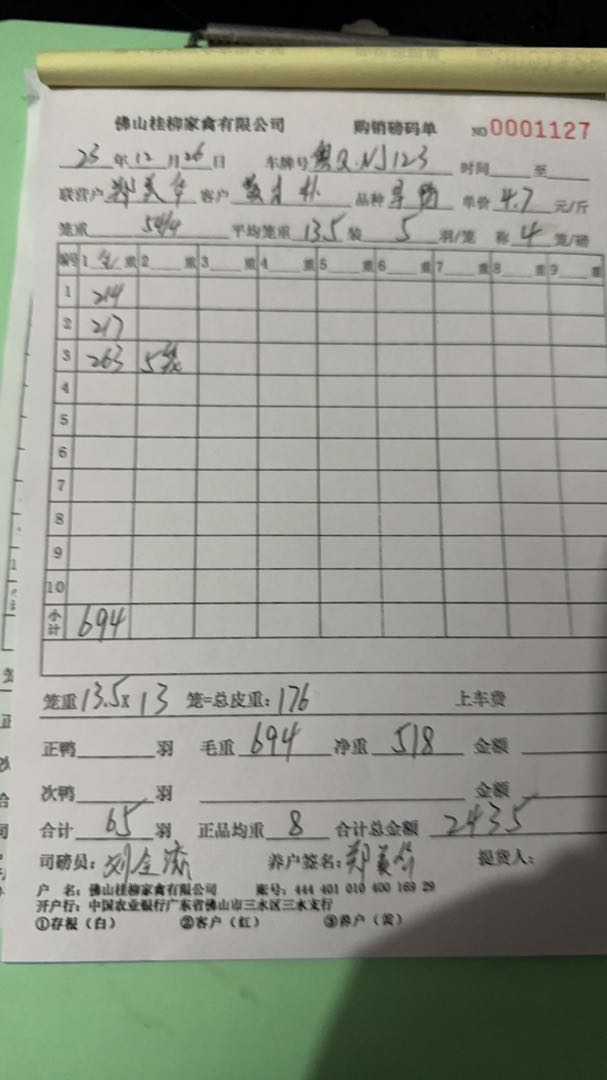 佛山桂柳家禽有限公司 购销磅码单 NO 0001127
23 年 12 月 26 日 车牌号 粤Q·NJ123 时间 至
联营户 郑美华 客户 品种 单价 4.7 元/斤
笼重 54/4 平均笼重 13.5 装 5 羽/笼 称 4 笼/磅
编号 1 重 2 重 3 重 4 重 5 重 6 重 7 重 8 重 9 重
1 214
2 217
3 263 5
4
5
6
7
8
9
10
小计 694
笼重 13.5 x 13 笼=总皮重: 176 上车费
正鸭 羽 毛重 694 净重 518 金额
次鸭 羽 金额
合计 65 羽 正品均重 8 合计总金额 2435
司磅员: 刘 养户签名: 郑美华 提货人:
户 名: 佛山桂柳家禽有限公司 账号: 444 401 010 400 169 29
开户行: 中国农业银行广东省佛山市三水区三水支行
①存根(白) ②客户(红) ③养户(黄)